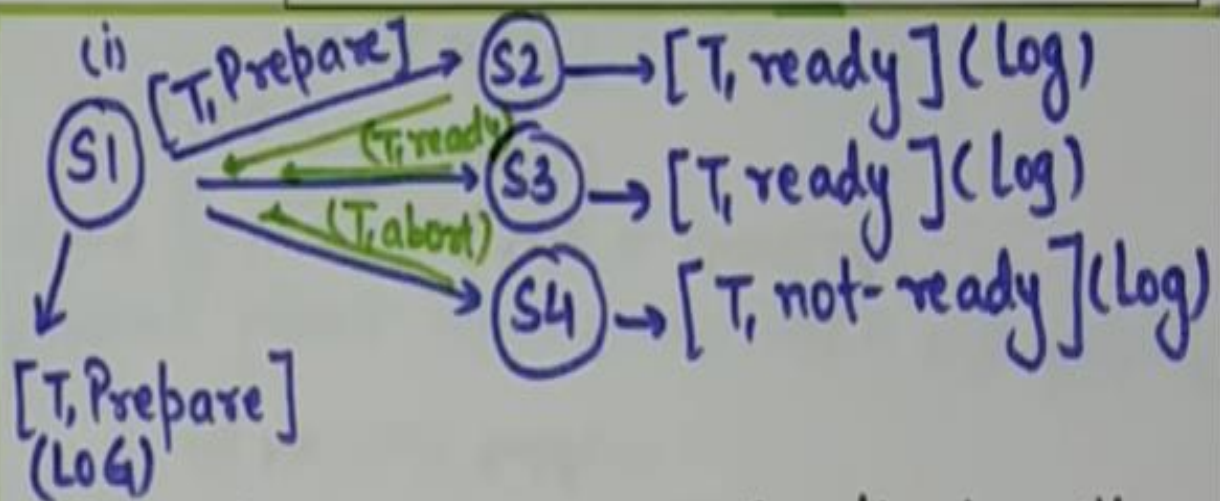 (i)
[T, Prepare]
S1
S2 → [T, ready] (log)
(T, ready)
S3 → [T, ready] (log)
(T, abort)
S4 → [T, not-ready] (log)
[T, Prepare]
(LOG)